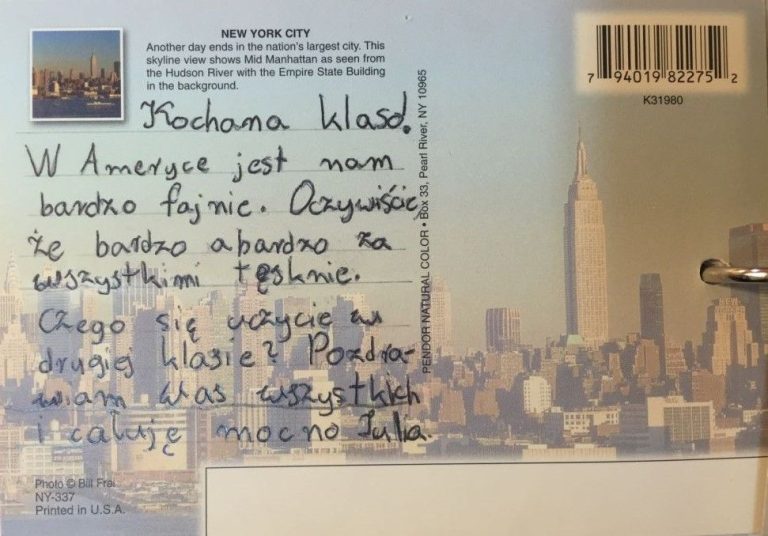 NEW YORK CITY
Another day ends in the nation's largest city. This
skyline view shows Mid Manhattan as seen from
the Hudson River with the Empire State Building
in the background.
Kochana klaso!
W Ameryce jest nam
bardzo fajnie. Oczywiście,
że bardzo abardzo za
wszystkimi tęsknie.
Czego się uczycie w
drugiej klasie? Pozdra-
wiam was wszystkich
i całuję mocno Julia.
PENDOR NATURAL COLOR • Box 33, Pearl River, NY 10965
7 94019 82275 2
K31980
Photo © Bill Frei
NY-337
Printed in U.S.A.